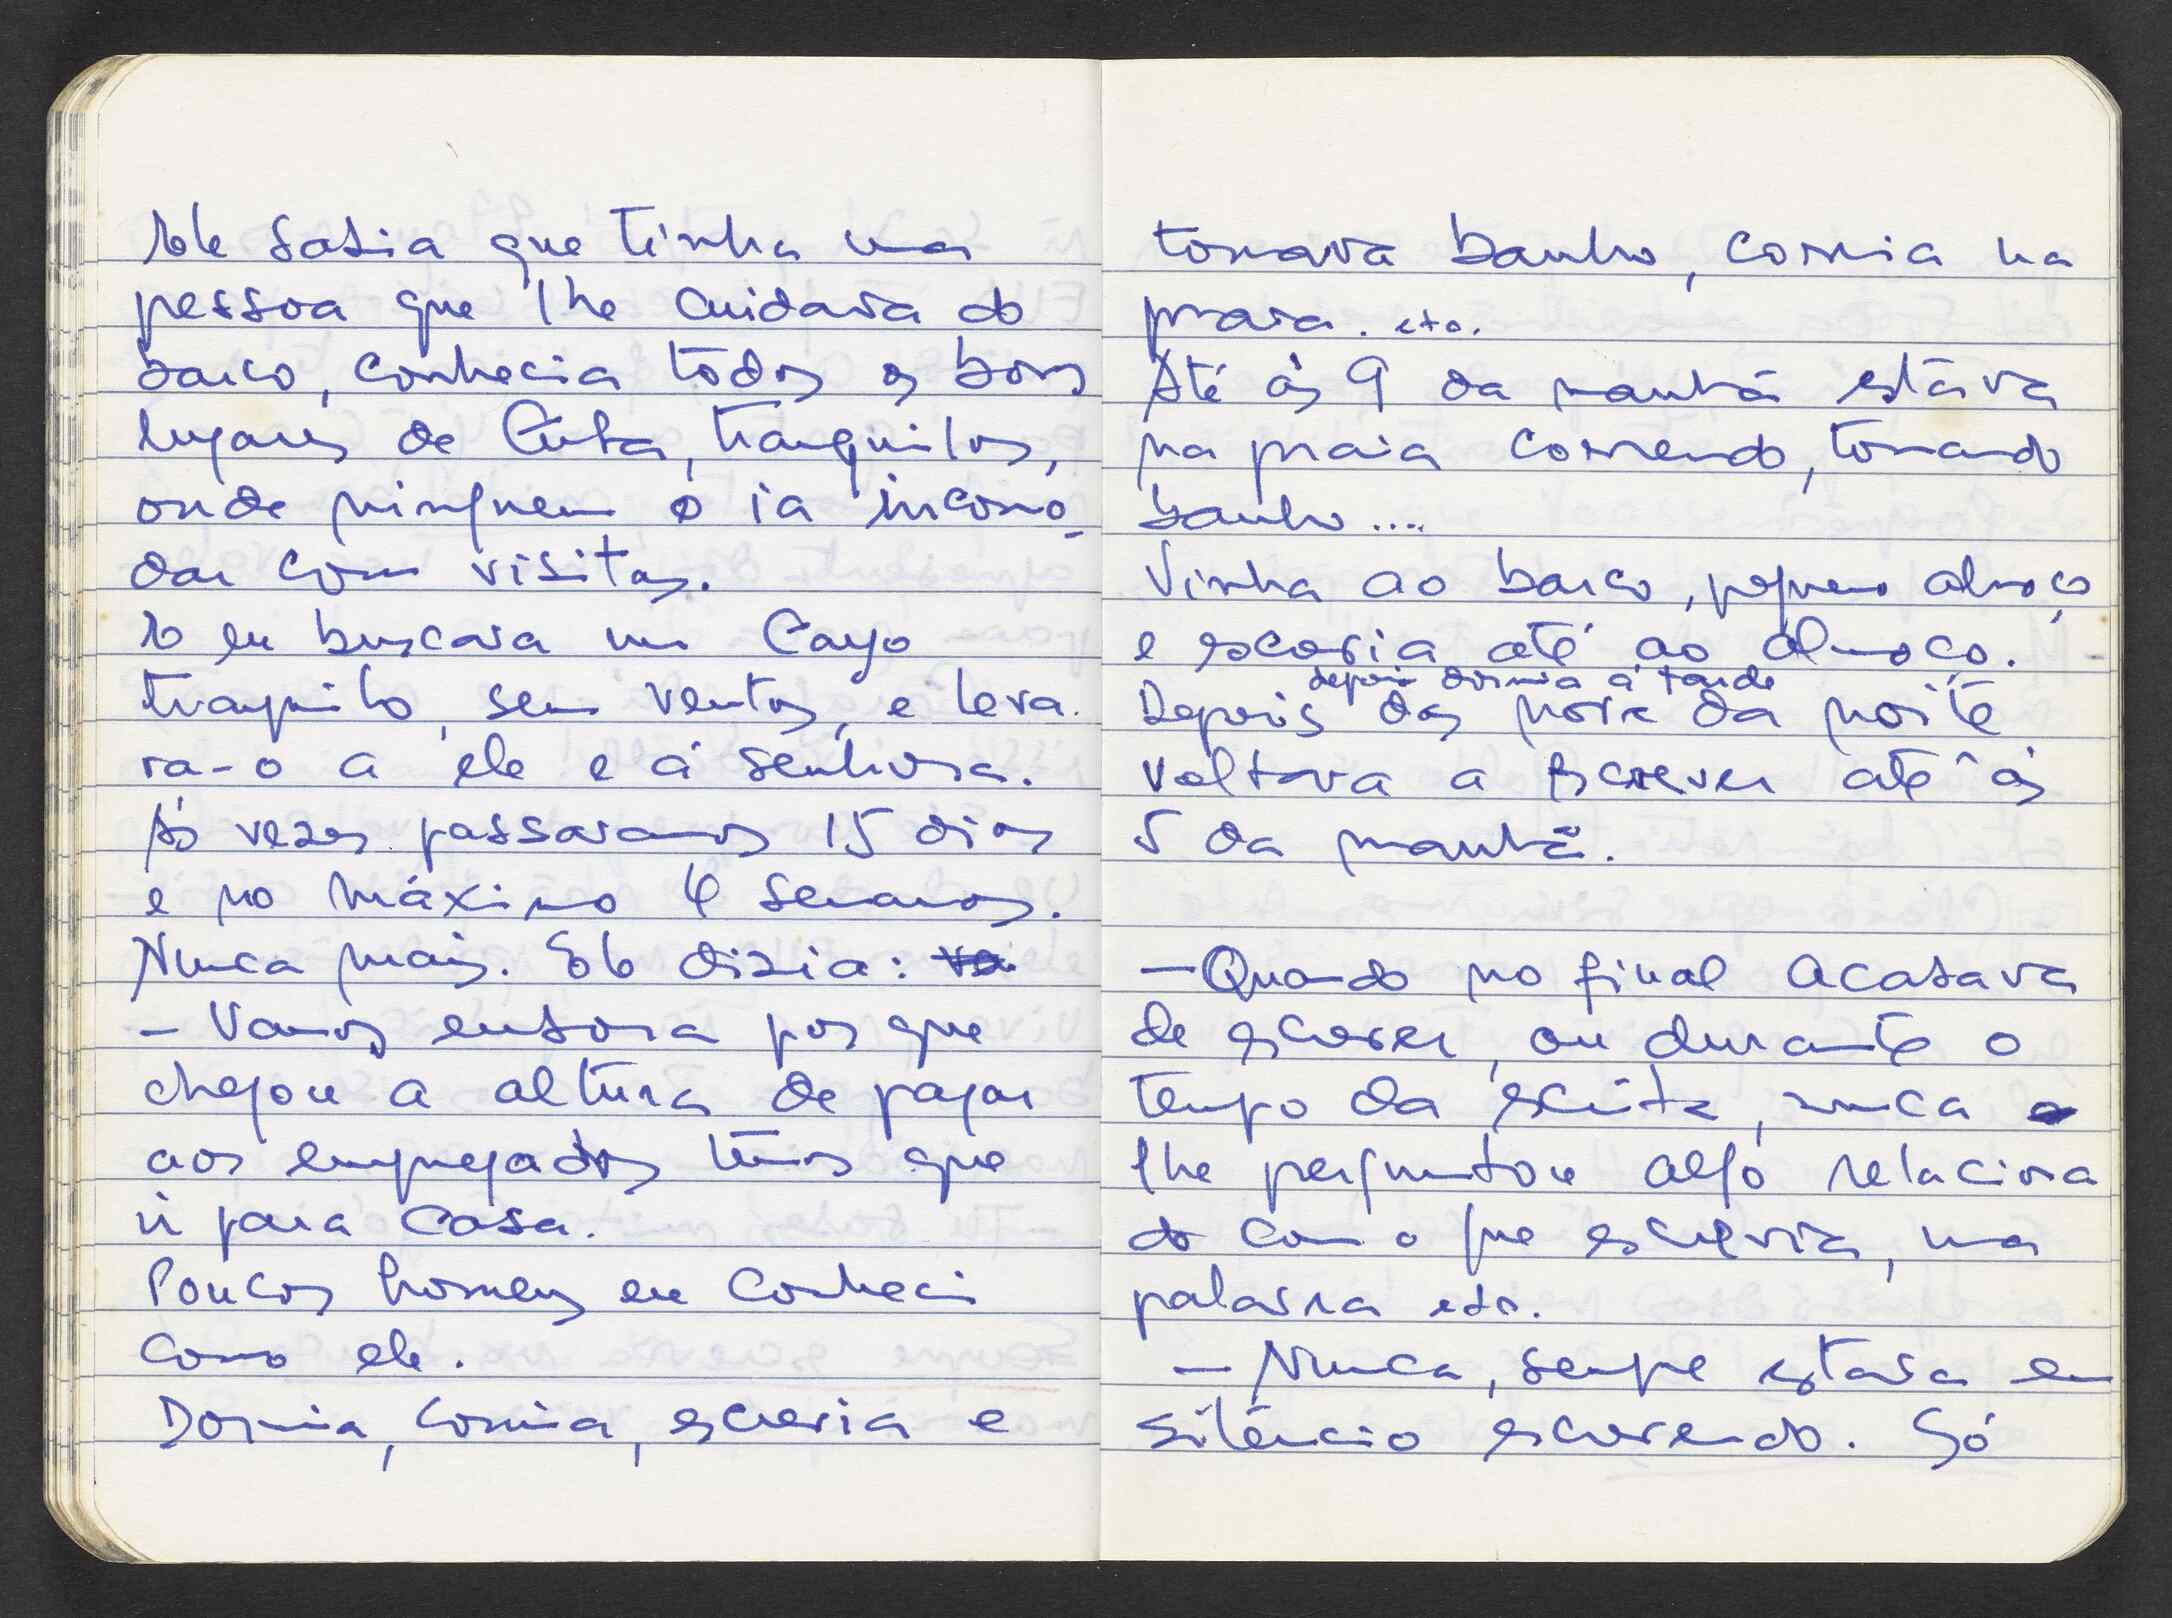 Ele sabia que tinha uma
pessoa que lhe cuidava do
barco, conhecia todos os bons
lugares de Cuba, tranquilos,
onde ninguem o ia incomo-
dar com visitas.
E eu buscava um Cayo
tranquilo, sem ventos, e leva-
va-o a ele e á senhora.
Às vezes passavamos 15 dias
e no máximo 4 semanas.
Nunca mais. Ele dizia:
– Vamos embora por que
chegou a altura de pagar
aos empregados temos que
ir para casa.
Poucos homens eu conheci
como ele.
Dormia, comia, escrevia e
tomava banho, corria na
praia. etc.
Até ás 9 da manhã estáva
na praia correndo, tomando
banho....
Vinha ao barco, pequeno almoço
e escrevia até ao almoço.
depois dormia á tarde
Depois das nove da noite
voltava a escrever até ás
5 da manhã.
– Quando no final acabava
de escrever, ou durante o
tempo da escrita, nunca
lhe perguntou algo relaciona
do com o que escrevia, uma
palavra etc.
– Nunca, sempre estava em
silêncio escrevendo. Só